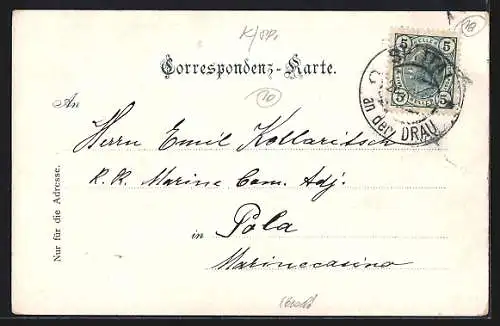 K/Spi.
10
Correspondenz-Karte.
5 5
5 5
an der DRAU
10
An
Herrn Emil Kollaritsch
K. K. Marine Com. Adj.
in Pola
Marinecasino
Nur für die Adresse.